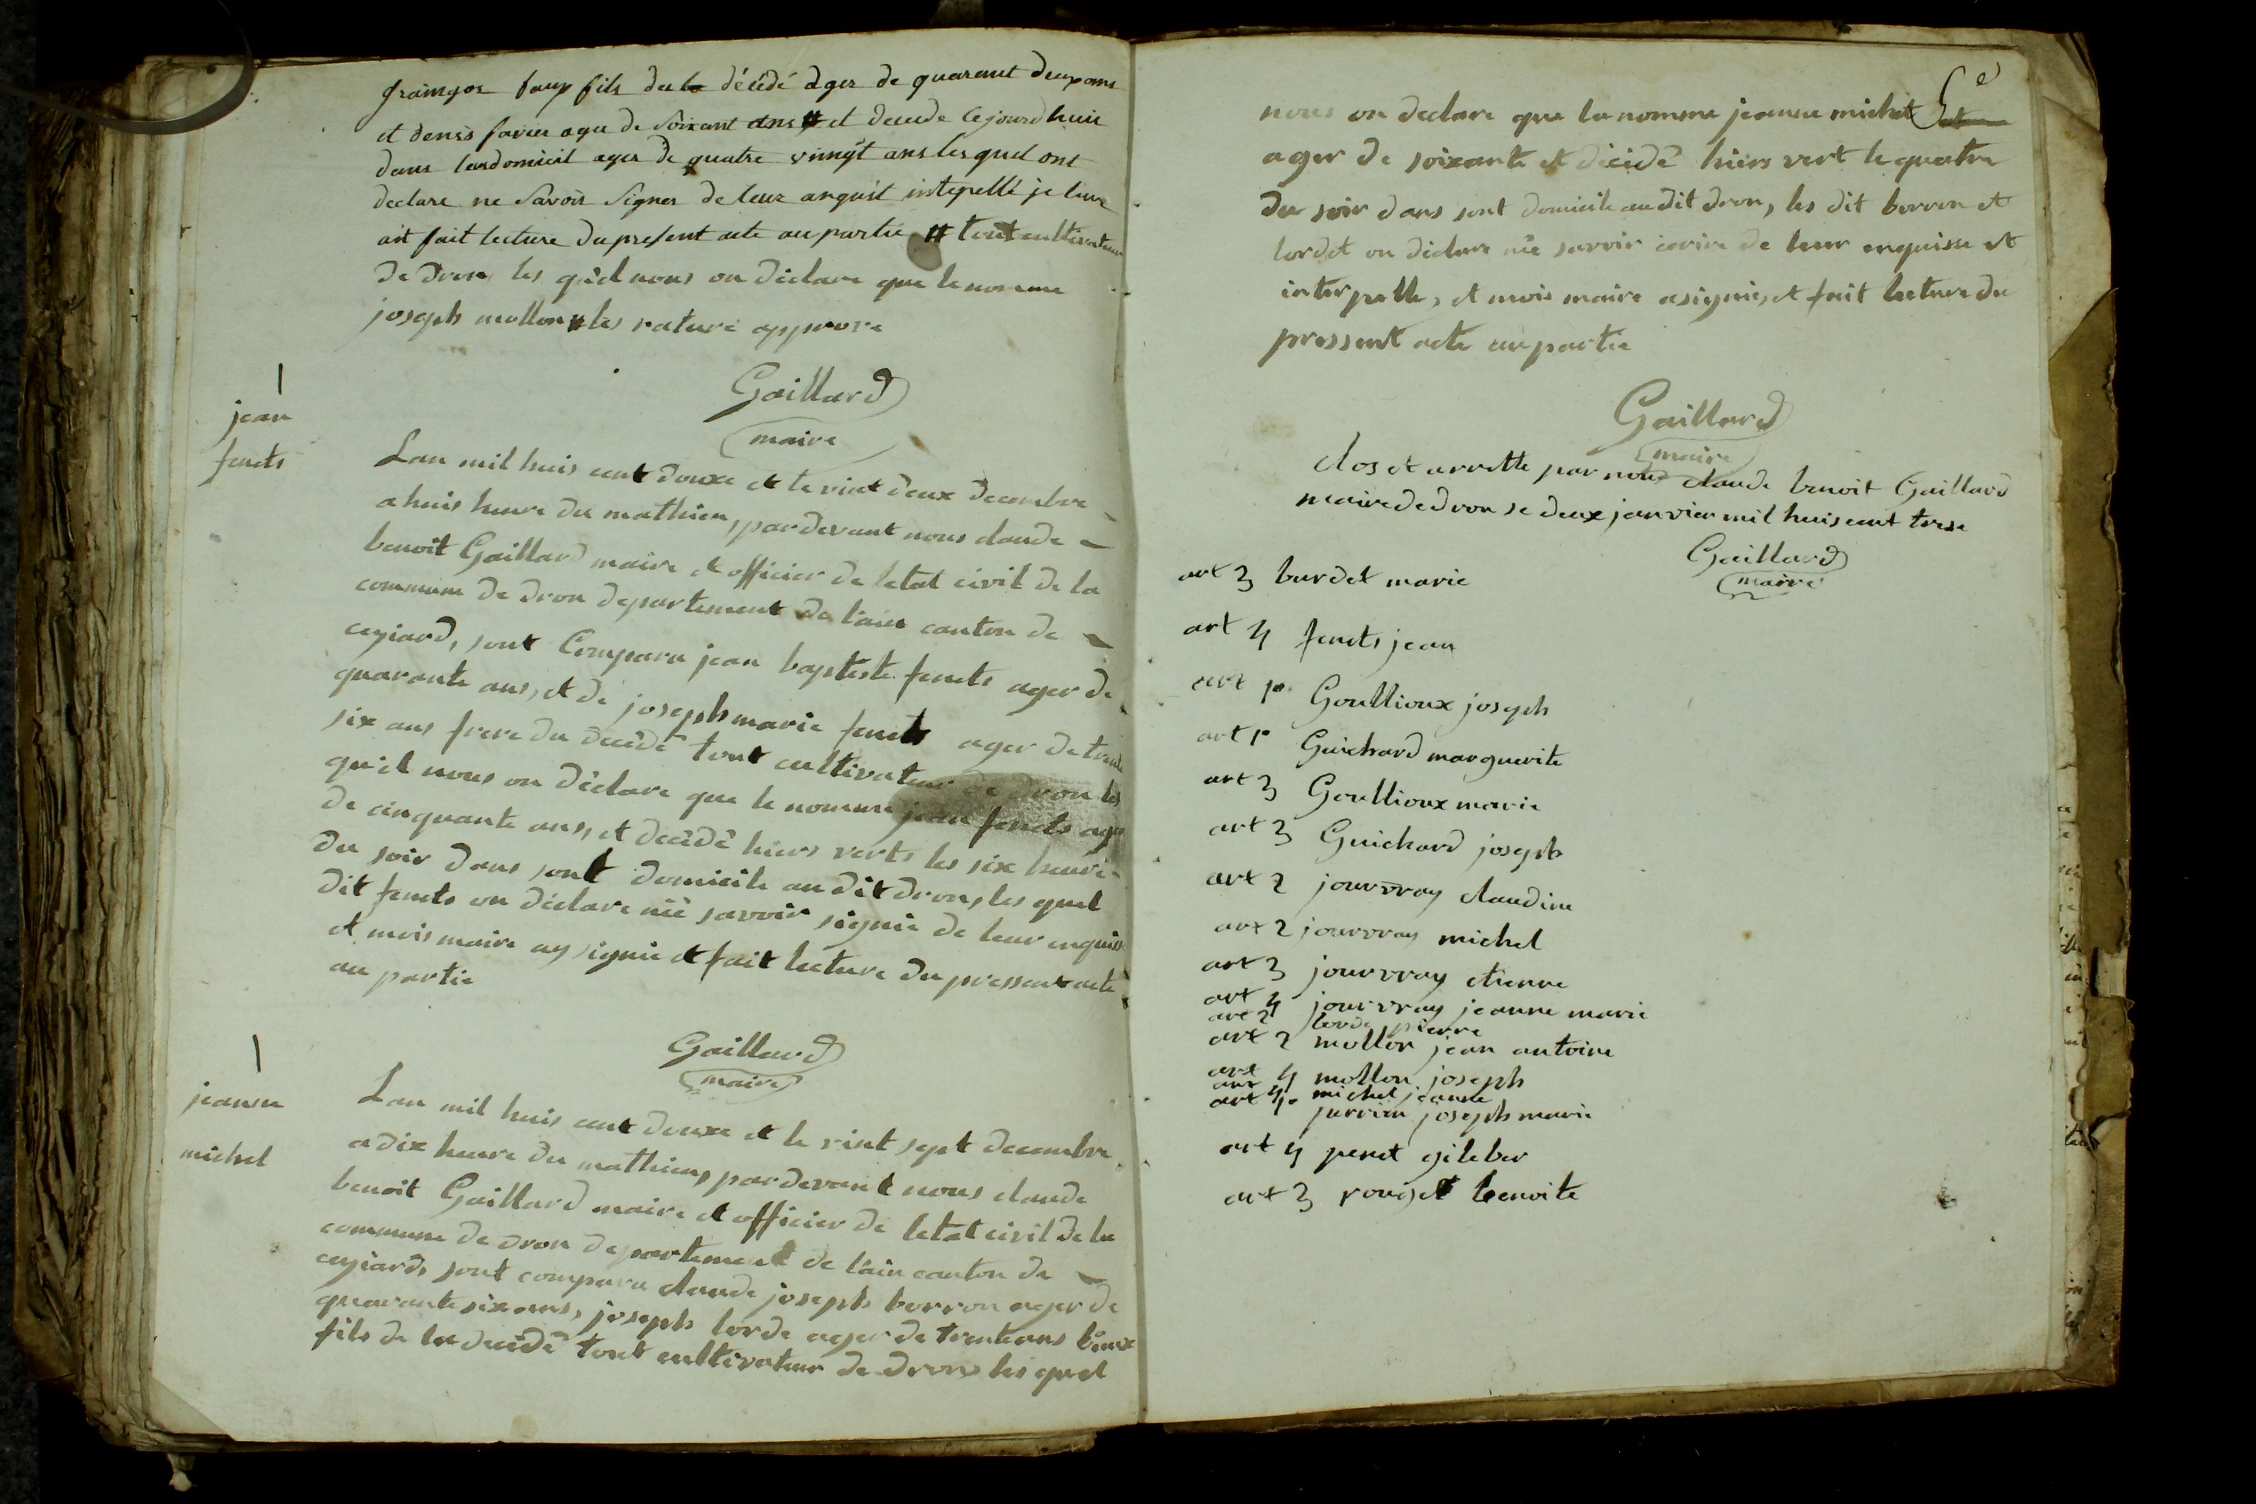 fils du décédé ager de quarant deux ans
et denis favier age de Soixant ans # et decede cejourdhuit
dans domicil ager de quatre vinngt ans lesquel ont
declare ne Savoir Signer de leur anquit intepellé je leur
ait fait lecture du present acte au partie # tout cultivateur
de dron les quel nous on déclare que le nomme
joseph mollon # les rature approve
Gaillard
maire
jean
fenets
Lan mil huis cent douxe et le vint deux decembre
a huis heure du mathien, pardevant nous claude
benoit Gaillard maire et officier de letat civil de la
commune de dron departement de l'ain canton de
ceyiard, sont Comparu jean baptiste fenets ager de
quarante ans, et de joseph marie fenets ager de trante
six ans frere du décédé tout cultivateur de dron les
quel nous on déclare que le nomme jean fenets ager
de cinquante ans, et decédé hiers verts les six heure
du soir dans sont domicile au dit dron, les quel
dit fenets on déclare nië savoir signié de leur enquisse
et mois maire ay signié et fait lecture du pressent acte
au partie
Gaillard
maire
jeanne
michel
Lan mil huis cent douxe et le vint sept decembre
a dix heure du mathien, pardevant nous claude
benoit Gaillard maire et officier de letat civil de la
commune de dron departement de l'ain canton de
ceyiard, sont comparu claude joseph borron ager de
quarante six ans, joseph lorde ager de trente ans
fils de la decédé tout cultivateur de dron, les quel
nous on declare que la nomme jeanne michel
ager de soixante et décidé hiers vert le quatre
du soir dans sont domicile au dit dron, les dit borron et
lordet on déclare nië savoir ecrire de leur enquisse et
interpelle, et mois maire a signié, et fait lecture du
pressent acte au partie
Gaillard
maire
clos et arrette par nous claude benoit Gaillard
maire de dron se deux janvier mil huis cent trese
Gaillard
maire
art 3 burdet marie
art 4 fenets jean
art 1e Goullioux joseph
art 1e Guichard marguerite
art 3 Goullioux marie
art 3 Guichard joseph
art 2 jourvray claudine
art 2 jourvray michel
art 3 jourvray etienne
art 4 jourvray jeanne marie
art 2 lorde pierre
art 2 mollon jean antoine
art 4 mollon joseph
art 4 michel jeanne
art 1e perrier joseph marie
art 4 penet gileber
art 3 rouget benoite